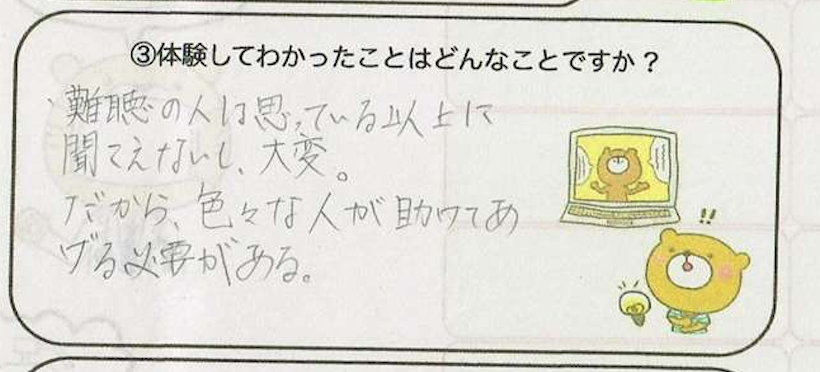 ③体験してわかったことはどんなことですか？
難聴の人は思っている以上に
聞こえないし、大変。
だから、色々な人が助けてあ
げる必要がある。
!!